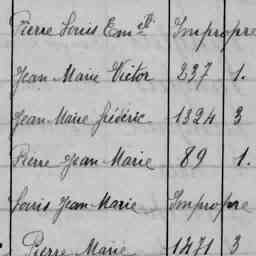 Pierre Louis Em.el Impropre
Jean Marie Victor 237 1.
Jean Marie frédéric 1324 3
Pierre Jean Marie 89 1.
Louis Jean Marie Impropre
Pierre Marie 1471 3